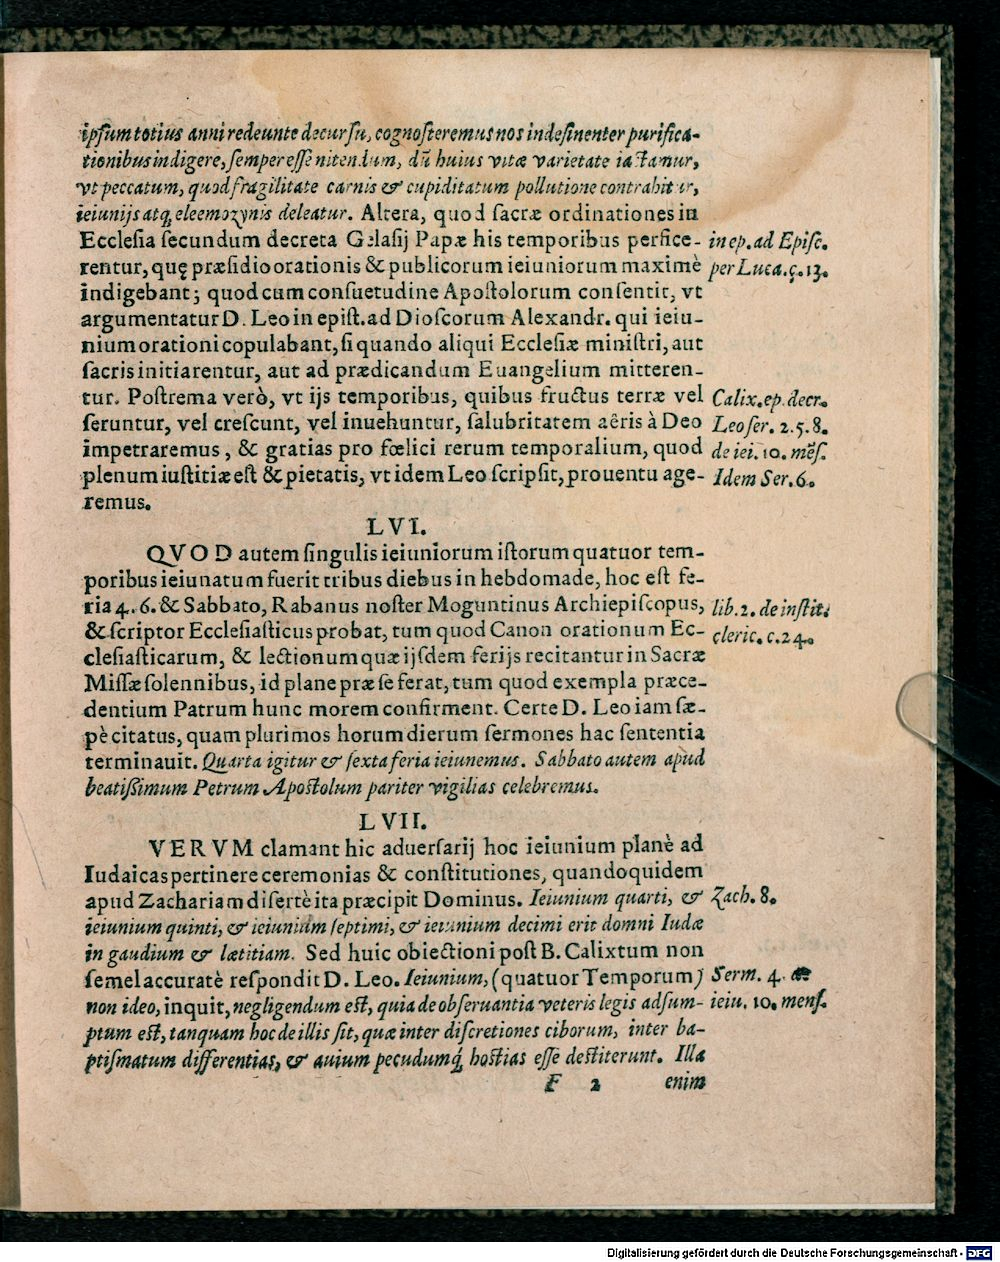 ipſum totius anni redeunte decurſu, cognoſceremus nos indeſinenter purifica-
tionibus indigere, ſemper eſſe nitendum, dū huius vitæ varietate iactamur,
vt peccatum, quod fragilitate carnis & cupiditatum pollutione contrahitur,
ieiunijs atq, eleemozynis deleatur. Altera, quod ſacræ ordinationes in
Eccleſia ſecundum decreta Gelaſij Papæ his temporibus perfice-
in ep. ad Epiſc.
rentur, quę præſidio orationis & publicorum ieiuniorum maximè
per Luca. ç. 13.
indigebant; quod cum conſuetudine Apoſtolorum conſentit, vt
argumentatur D. Leo in epiſt. ad Dioſcorum Alexandr. qui ieiu-
nium orationi copulabant, ſi quando aliqui Eccleſiæ miniſtri, aut
ſacris initiarentur, aut ad prædicandum Euangelium mitteren-
tur. Poſtrema verò, vt ijs temporibus, quibus fructus terræ vel
Calix. ep. decr.
ſeruntur, vel creſcunt, vel inuehuntur, ſalubritatem aêris à Deo
Leo ſer. 2. 5. 8.
impetraremus, & gratias pro fœlici rerum temporalium, quod
de iei. 10. mēſ.
plenum iuſtitiæ eſt & pietatis, vt idem Leo ſcripſit, prouentu age-
Idem Ser. 6.
remus.
LVI.
QVOD autem ſingulis ieiuniorum iſtorum quatuor tem-
poribus ieiunatum fuerit tribus diebus in hebdomade, hoc eſt fe-
ria 4. 6. & Sabbato, Rabanus noſter Moguntinus Archiepiſcopus,
lib. 2. de inſtit.
& ſcriptor Eccleſiaſticus probat, tum quod Canon orationum Ec-
cleric. c. 24.
cleſiaſticarum, & lectionum quæ ijſdem ferijs recitantur in Sacræ
Miſſæ ſolennibus, id plane præ ſe ferat, tum quod exempla præce-
dentium Patrum hunc morem confirment. Certe D. Leo iam ſæ-
pè citatus, quam plurimos horum dierum ſermones hac ſententia
terminauit. Quarta igitur & ſexta feria ieiunemus. Sabbato autem apud
beatiſſimum Petrum Apoſtolum pariter vigilias celebremus.
LVII.
VERVM clamant hic aduerſarij hoc ieiunium planè ad
Iudaicas pertinere ceremonias & conſtitutiones, quandoquidem
apud Zachariam diſertè ita præcipit Dominus. Ieiunium quarti, &
Zach. 8.
ieiunium quinti, & ieiunium ſeptimi, & ieiunium decimi erit domni Iudæ
in gaudium & lætitiam. Sed huic obiectioni poſt B. Calixtum non
ſemel accuratè reſpondit D. Leo. Ieiunium, (quatuor Temporum)
Serm. 4. de
non ideo, inquit, negligendum eſt, quia de obſeruantia veteris legis adſum-
ieiu. 10. menſ.
ptum eſt, tanquam hoc de illis ſit, quæ inter diſcretiones ciborum, inter ba-
ptiſmatum differentias, & auium pecudumq́ hoſtias eſſe deſtiterunt. Illa
F 2
enim
Digitalisierung gefördert durch die Deutsche Forschungsgemeinschaft - DFG